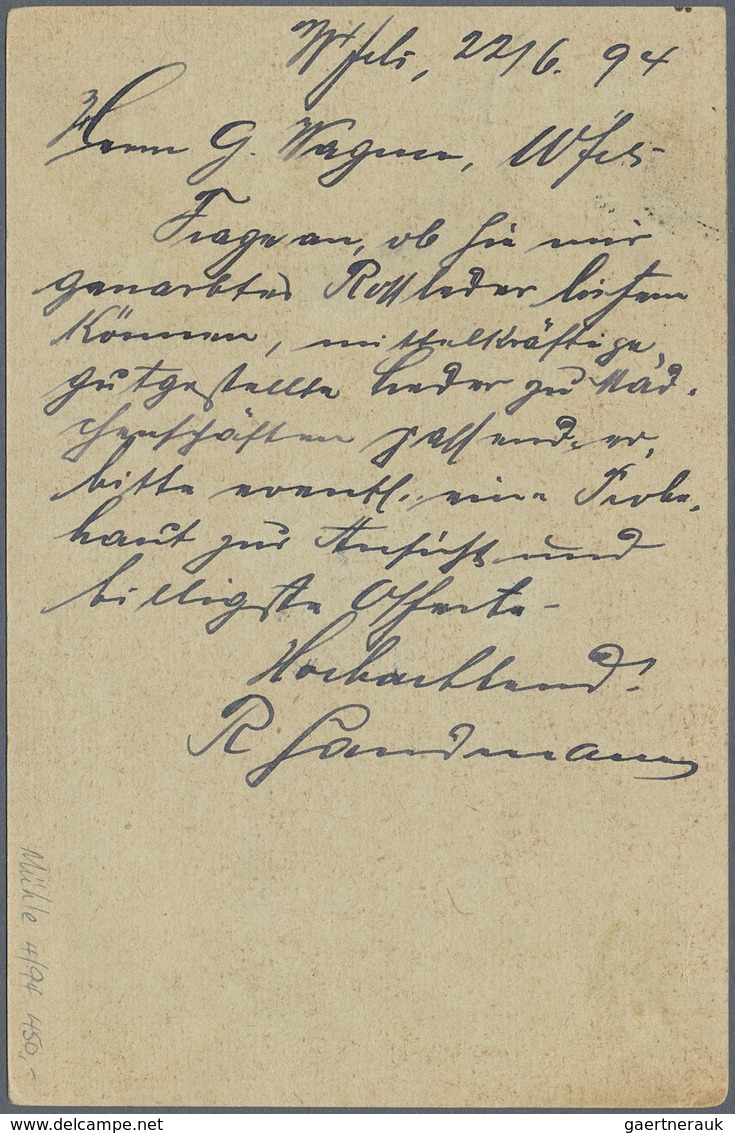 W'fels, 22/6. 94
Herrn G. Wagner, W'fels
Frage an, ob Sie mir
genarbtes Rossleder liefern
können, mittelkräftige,
gutgestellte Leder zu Mäd-
chenschäften passend, er-
bitte eventl. eine Probe-
haut zur Ansicht und
billigste Offerte -
Hochachtend!
R Sandmann
Mühle 4/94 450,-
delcampe.net
gaertnerauk